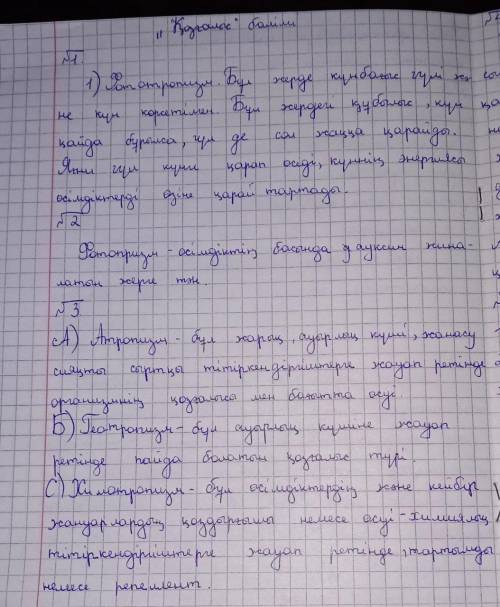 "Қозғалыс" бөлімі
№1.
1) Фототропизм. Бұл жерде күнбағыс гүлі
не күн көрсетілген. Бұл жердегі құбылыс, күн
қайда бұрылса, гүл де сол жаққа қарайды.
Яғни гүл күнге қарап өседі, күннің энергиясы
өсімдіктерді өзіне қарай тартады.
№2
Фотопризм - өсімдіктің басында ауксин жина-
латын жерге тән.
№3
А) Атропизм - бұл жарық, ауырлық күші, жанасу
сияқты сыртқы тітіркендіргіштерге жауап ретінде
организмнің қозғалысы мен бағытта өсуі.
Б) Геотропизм - бұл ауырлық күшіне жауап
ретінде пайда болатын қозғалыс түрі.
С) Химотропизм - бұл өсімдіктердің және кейбір
жануарлардың қоздырғышы немесе өсуі - химиялық
тітіркендіргіштерге жауап ретінде, тартымды
немесе репеллент.